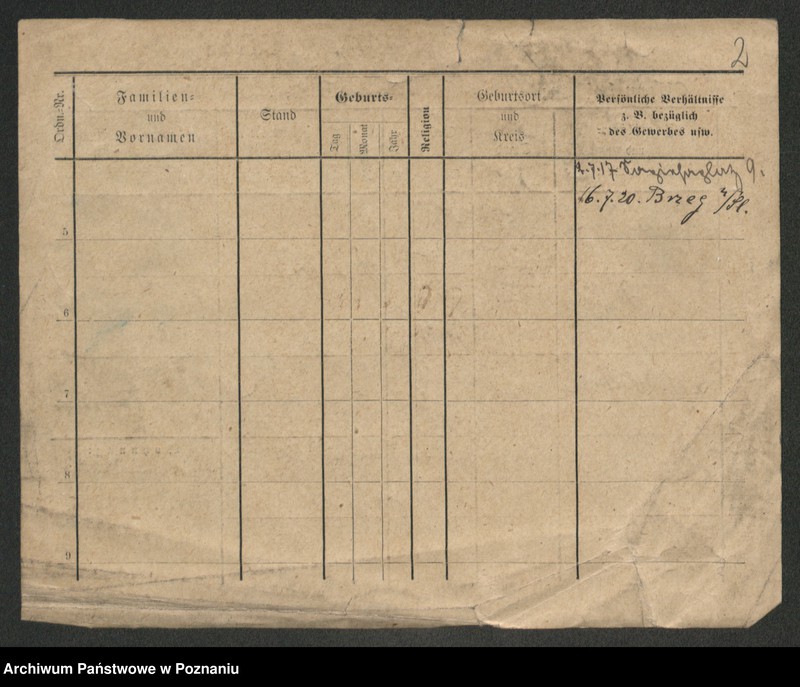 2
Ordn.-Nr.
Familien-
und
Vornamen
Stand
Geburts-
Tag
Monat
Jahr
Religion
Geburtsort
und
Kreis
Persönliche Verhältnisse
z. B. bezüglich
des Gewerbes usw.
2.7.17 Sapiehaplatz 9.
16.7.20. Brzeg
5
6
7
8
9
Archiwum Państwowe w Poznaniu